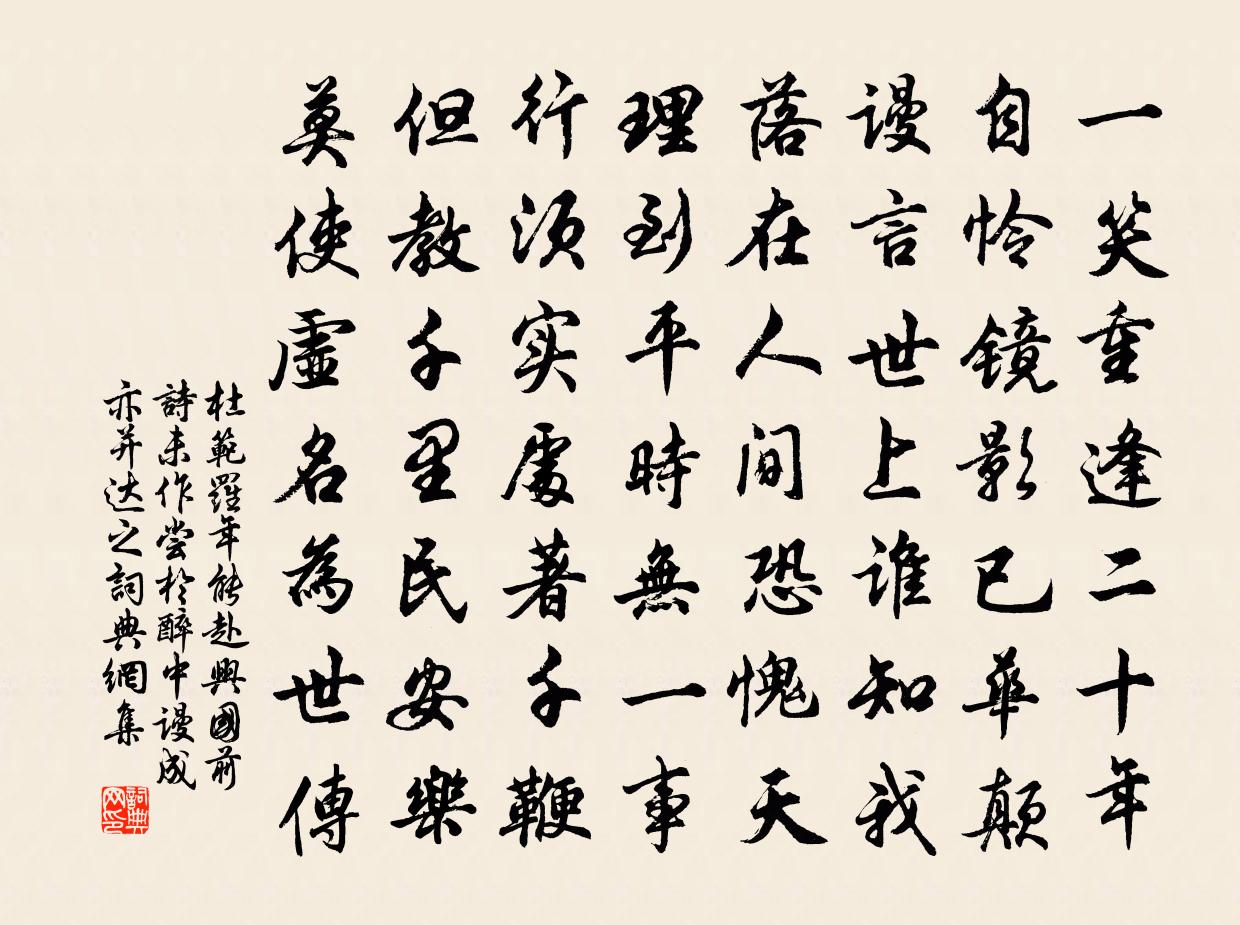 一笑重逢二十年
自怜镜影已華顛
谩言世上谁知我
落在人间恐愧天
理到平時無一事
行须实處著千鞭
但教千里民安樂
莫使虛名為世傳
杜範羅年能赴興國前
詩未作尝於醉中谩成
亦并达之詞典網集
詞典网印